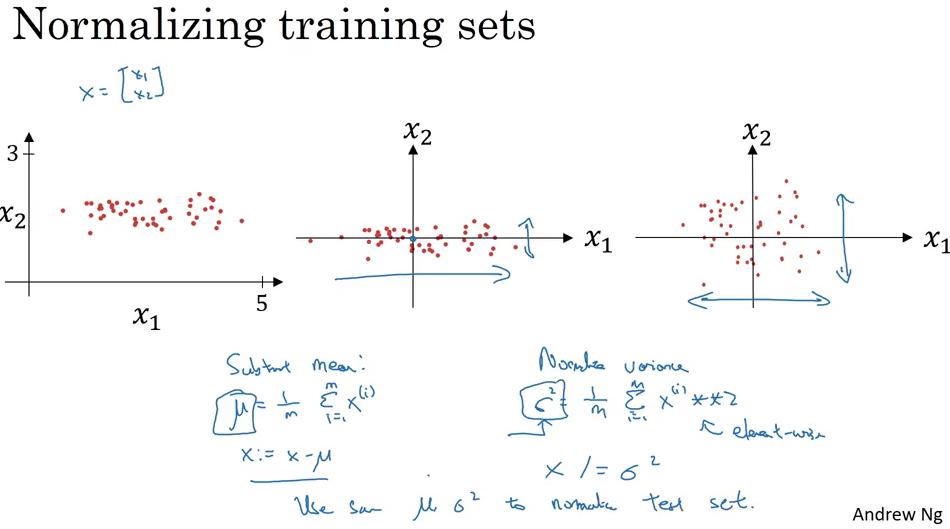 Normalizing training sets
x = [x₁ x₂]
3
x₂
x₁
5
x₂
x₁
x₂
x₁
Subtract mean:
μ = 1/m Σᵢ₌₁ᵐ x⁽ⁱ⁾
x := x - μ
Normalize variance
σ² = 1/m Σᵢ₌₁ᵐ x⁽ⁱ⁾ ** 2
element-wise
x /= σ²
Use same μ σ² to normalize test set.
Andrew Ng